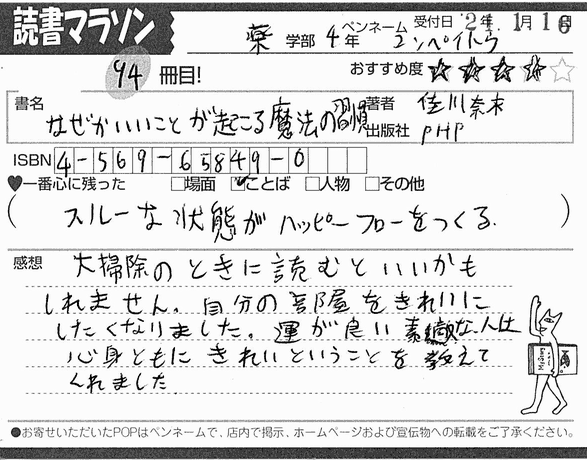 読書マラソン
薬 学部 4年 ペンネーム コンペイトウ 受付日 '2年 1月16
94 冊目! おすすめ度 ★★★★☆
書名 なぜかいいことが起こる魔法の習慣
著者 佳川奈未
出版社 PHP
ISBN 4-569-65849-0
♥一番心に残った □場面 ☑ことば □人物 □その他
(スルーな状態がハッピーフローをつくる.)
感想 大掃除のときに読むといいかも
しれません。自分の部屋をきれいに
したくなりました。運が良い素敵な人は
心身ともにきれいということを教えて
くれました
●お寄せいただいたPOPはペンネームで、店内で掲示、ホームページおよび宣伝物への転載をご了承ください。